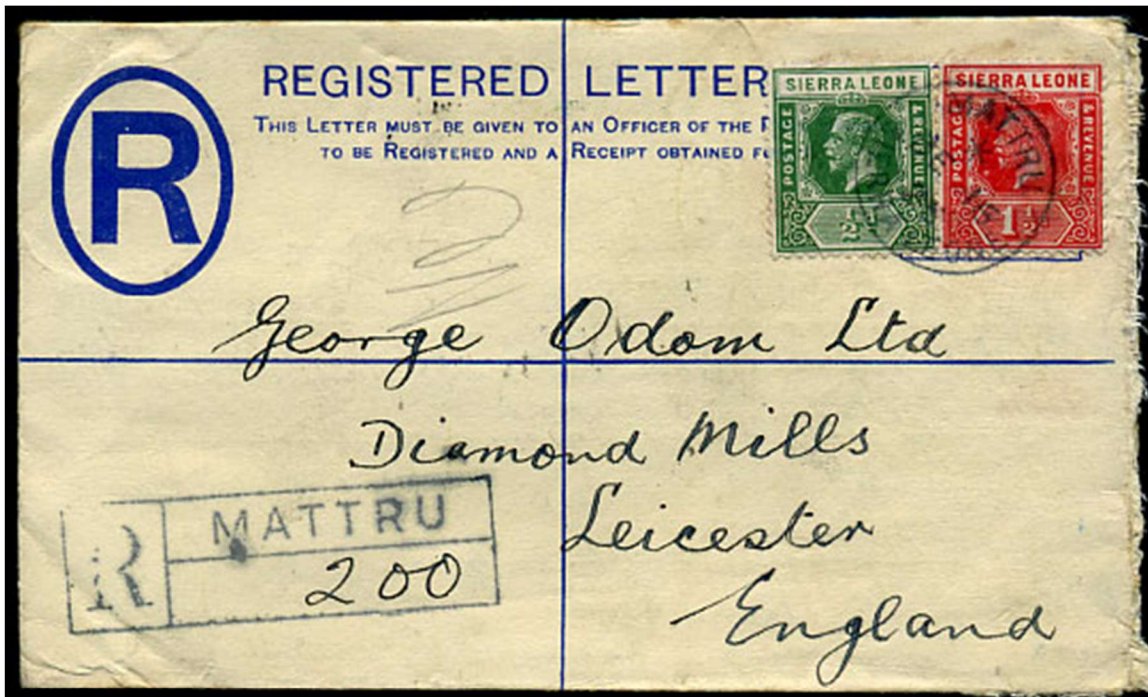 R
REGISTERED LETTER
THIS LETTER MUST BE GIVEN TO AN OFFICER OF THE
TO BE REGISTERED AND A RECEIPT OBTAINED
SIERRA LEONE
POSTAGE
& REVENUE
½d
SIERRA LEONE
POSTAGE
& REVENUE
1½d
MATTRU
George Odom Ltd
Diamond Mills
Leicester
England
R
MATTRU
200